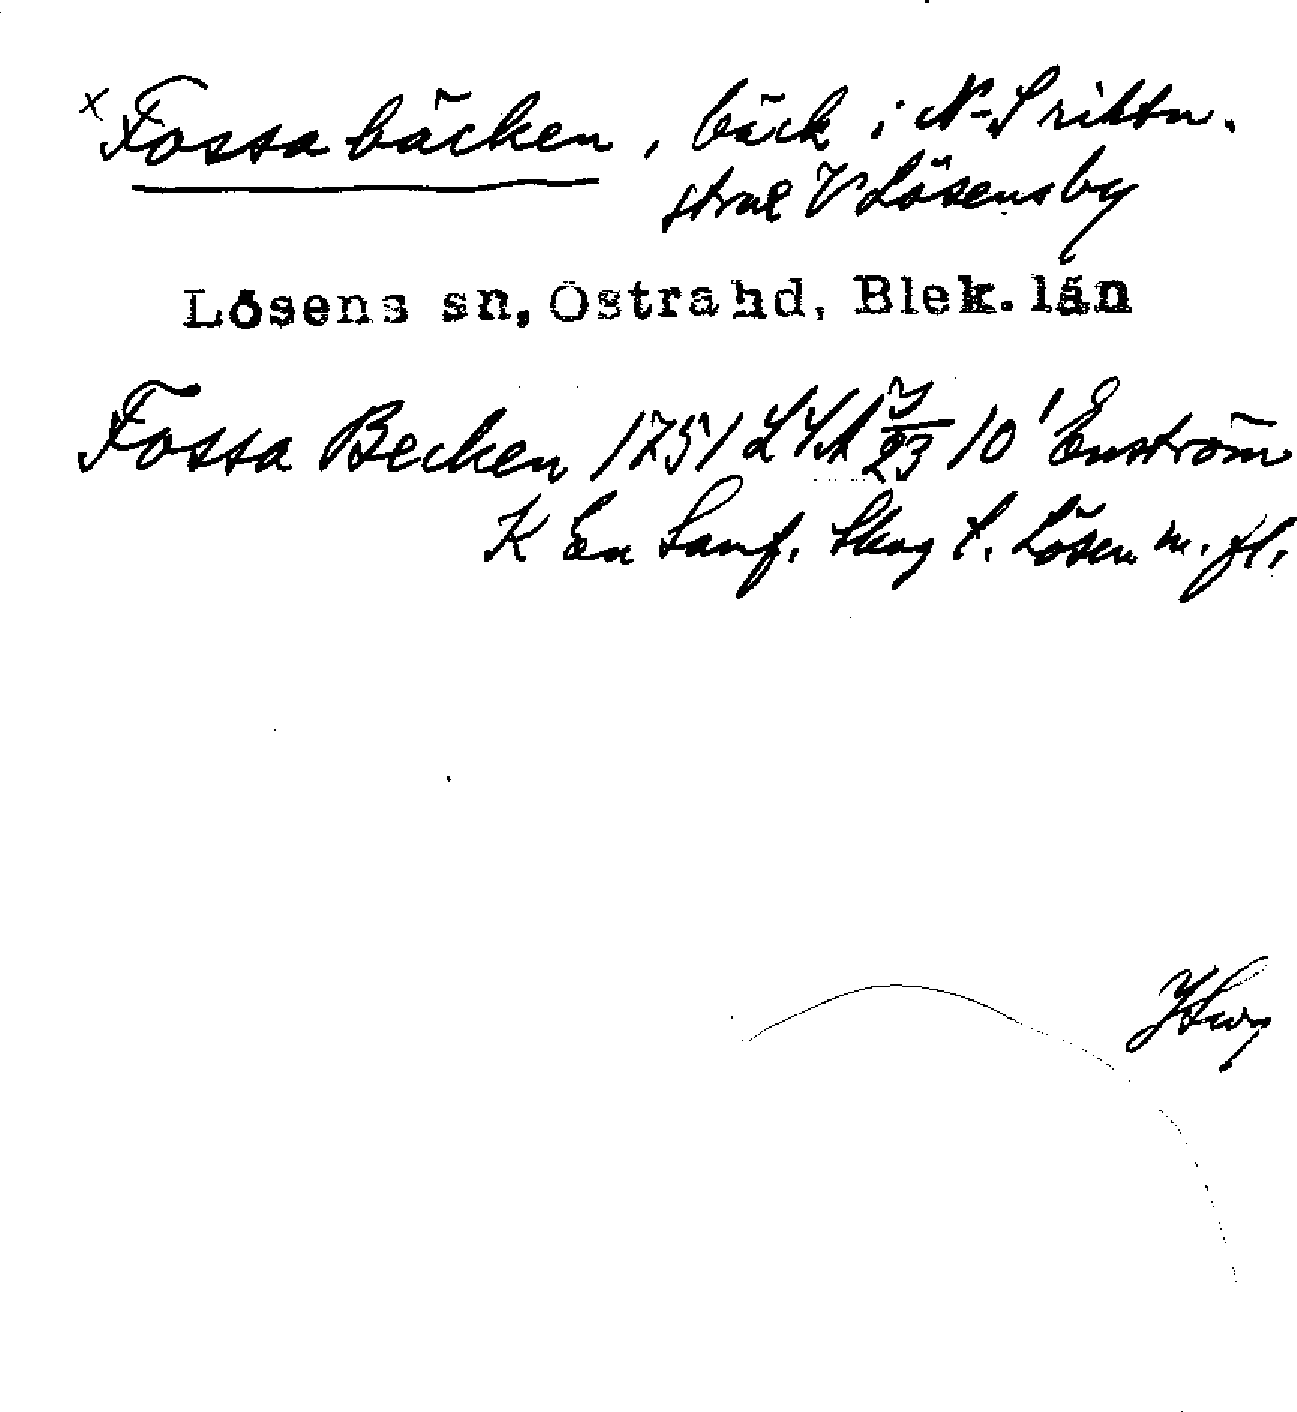 x Fossabäcken, bäck i N-S riktn.
strax V Lösensby
Lösens sn, Östra hd, Blek. län
Fossa Becken 1751 LSA 23 10' Enström
K En Samf. Skog t. Lösen m. fl.